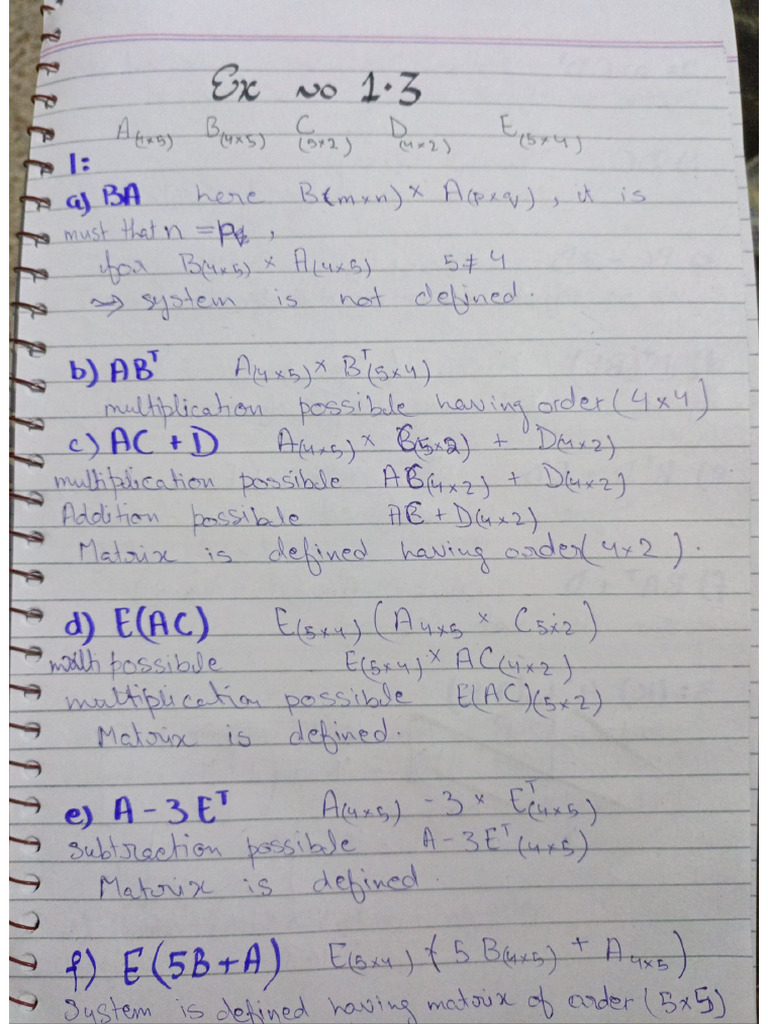 Ex no 1.3
A(4×5) B(4×5) C(5×2) D(4×2) E(5×4)
1:
a) BA here B(m×n) × A(p×q), it is
must that n = p,
for B(4×5) × A(4×5) 5≠4
⇝ system is not defined.
b) ABᵀ A(4×5) × Bᵀ(5×4)
multiplication possible having order (4×4)
c) AC + D A(4×5) × C(5×2) + D(4×2)
multiplication possible AC(4×2) + D(4×2)
Addition possible AC + D(4×2)
Matrix is defined having order (4×2).
d) E(AC) E(5×4) (A4×5 × C5×2)
multi possible E(5×4) × AC(4×2)
multiplication possible E(AC)(5×2)
Matrix is defined.
e) A - 3Eᵀ A(4×5) - 3 × Eᵀ(4×5)
subtraction possible A - 3Eᵀ(4×5)
Matrix is defined.
f) E(5B+A) E(5×4) (5 B(4×5) + A4×5)
System is defined having matrix of order (5×5)